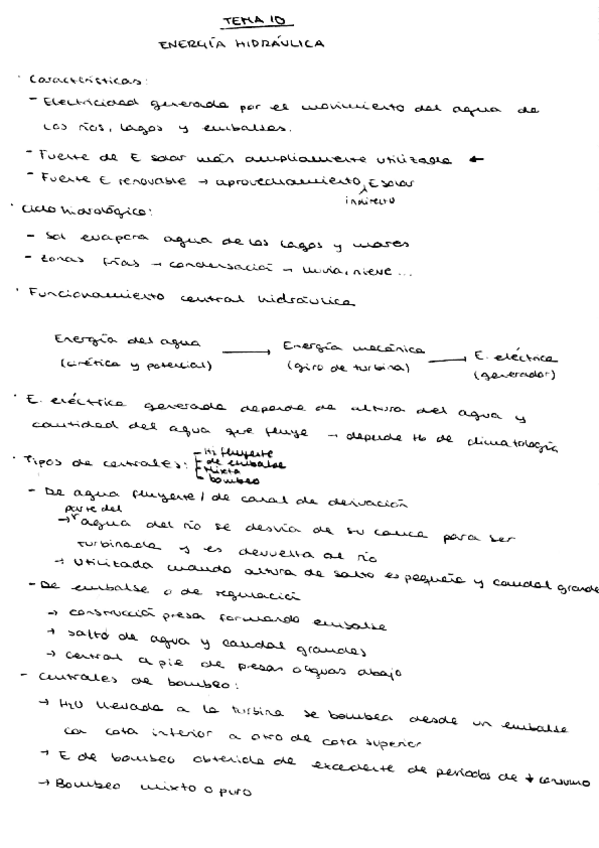 TEMA 10
ENERGÍA HIDRÁULICA
· Características:
- Electricidad generada por el movimiento del agua de
los ríos, lagos y embalses.
- Fuente de E solar más ampliamente utilizada ←
- Fuente E renovable → aprovechamiento E solar
indirecto
· Ciclo hidrológico:
- Sol evapora agua de los lagos y mares
- zonas frías → condensación → lluvia, nieve...
· Funcionamiento central hidráulica
Energía del agua → Energía mecánica → E. eléctrica
(cinética y potencial) (giro de turbina) (generador)
· E. eléctrica generada depende de altura del agua y
cantidad del agua que fluye → depende tb de climatología
· Tipos de centrales:
fluyente
de embalse
mixta
bombeo
- De agua fluyente / de canal de derivación
parte del
→ agua del río se desvía de su cauce para ser
turbinada y es devuelta al río
→ Utilizada cuando altura de salto es pequeña y caudal grande
- De embalse o de regulación
→ construcción presa formando embalse
→ salto de agua y caudal grandes
→ central a pie de presas o aguas abajo
- Centrales de bombeo:
→ H2O llevada a la turbina se bombea desde un embalse
con cota inferior a otro de cota superior
→ E de bombeo obtenida de excedente de periodos de ↓ consumo
→ Bombeo mixto o puro